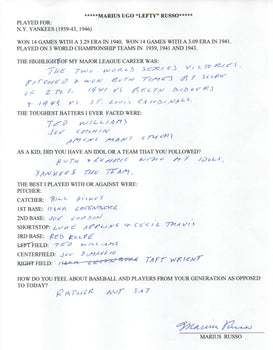 *****MARIUS UGO "LEFTY" RUSSO*****
PLAYED FOR:
N.Y. YANKEES (1939-43, 1946)
WON 14 GAMES WITH A 3.29 ERA IN 1940, WON 14 GAMES WITH A 3.09 ERA IN 1941.
PLAYED ON 3 WORLD CHAMPIONSHIP TEAMS IN 1939, 1941 AND 1943.
THE HIGHLIGHT OF MY MAJOR LEAGUE CAREER WAS:
THE TWO WORLD SERIES VICTORIES.
PITCHED & WON BOTH TIMES BY SCORE
OF 2 TO 1. 1941 VS BKLYN DODGERS
& 1943 VS ST. LOUIS CARDINALS.
THE TOUGHEST BATTERS I EVER FACED WERE:
TED WILLIAMS
JOE CRONIN
AMONG MANY OTHERS
AS A KID, DID YOU HAVE AN IDOL OR A TEAM THAT YOU FOLLOWED?
RUTH & GEHRIG WERE MY IDOLS,
YANKEES THE TEAM.
THE BEST I PLAYED WITH OR AGAINST WERE:
PITCHER:
CATCHER: BILL DICKEY
1ST BASE: HANK GREENBERG
2ND BASE: JOE GORDON
SHORTSTOP: LUKE APPLING & CECIL TRAVIS
3RD BASE: RED ROLFE
LEFT FIELD: TED WILLIAMS
CENTERFIELD: JOE DIMAGGIO
RIGHT FIELD: HANK GREENBERG TAFT WRIGHT
HOW DO YOU FEEL ABOUT BASEBALL AND PLAYERS FROM YOUR GENERATION AS OPPOSED
TO TODAY?
RATHER NOT SAY.
Marius Russo
MARIUS RUSSO